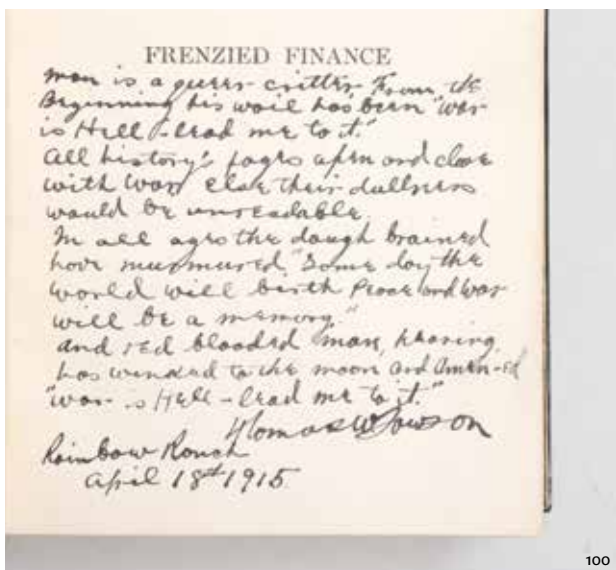 FRENZIED FINANCE
Man is a queer critter. From the
Beginning his wail has been "War
is Hell - lead me to it."
All history's pages open and close
with War, else their dullness
would be unreadable.
In all ages the dough brained
have murmured, "Some day the
world will birth Peace and War
will be a memory."
and red blooded man, hearing,
has winked to the moon and Amen-ed
"War is Hell - lead me to it."
Thomas W Lawson
Rainbow Ranch
April 18th 1915
100